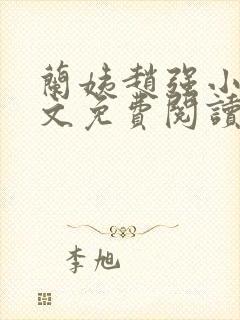 蘭姨趙强小
文免費閱讀
李旭